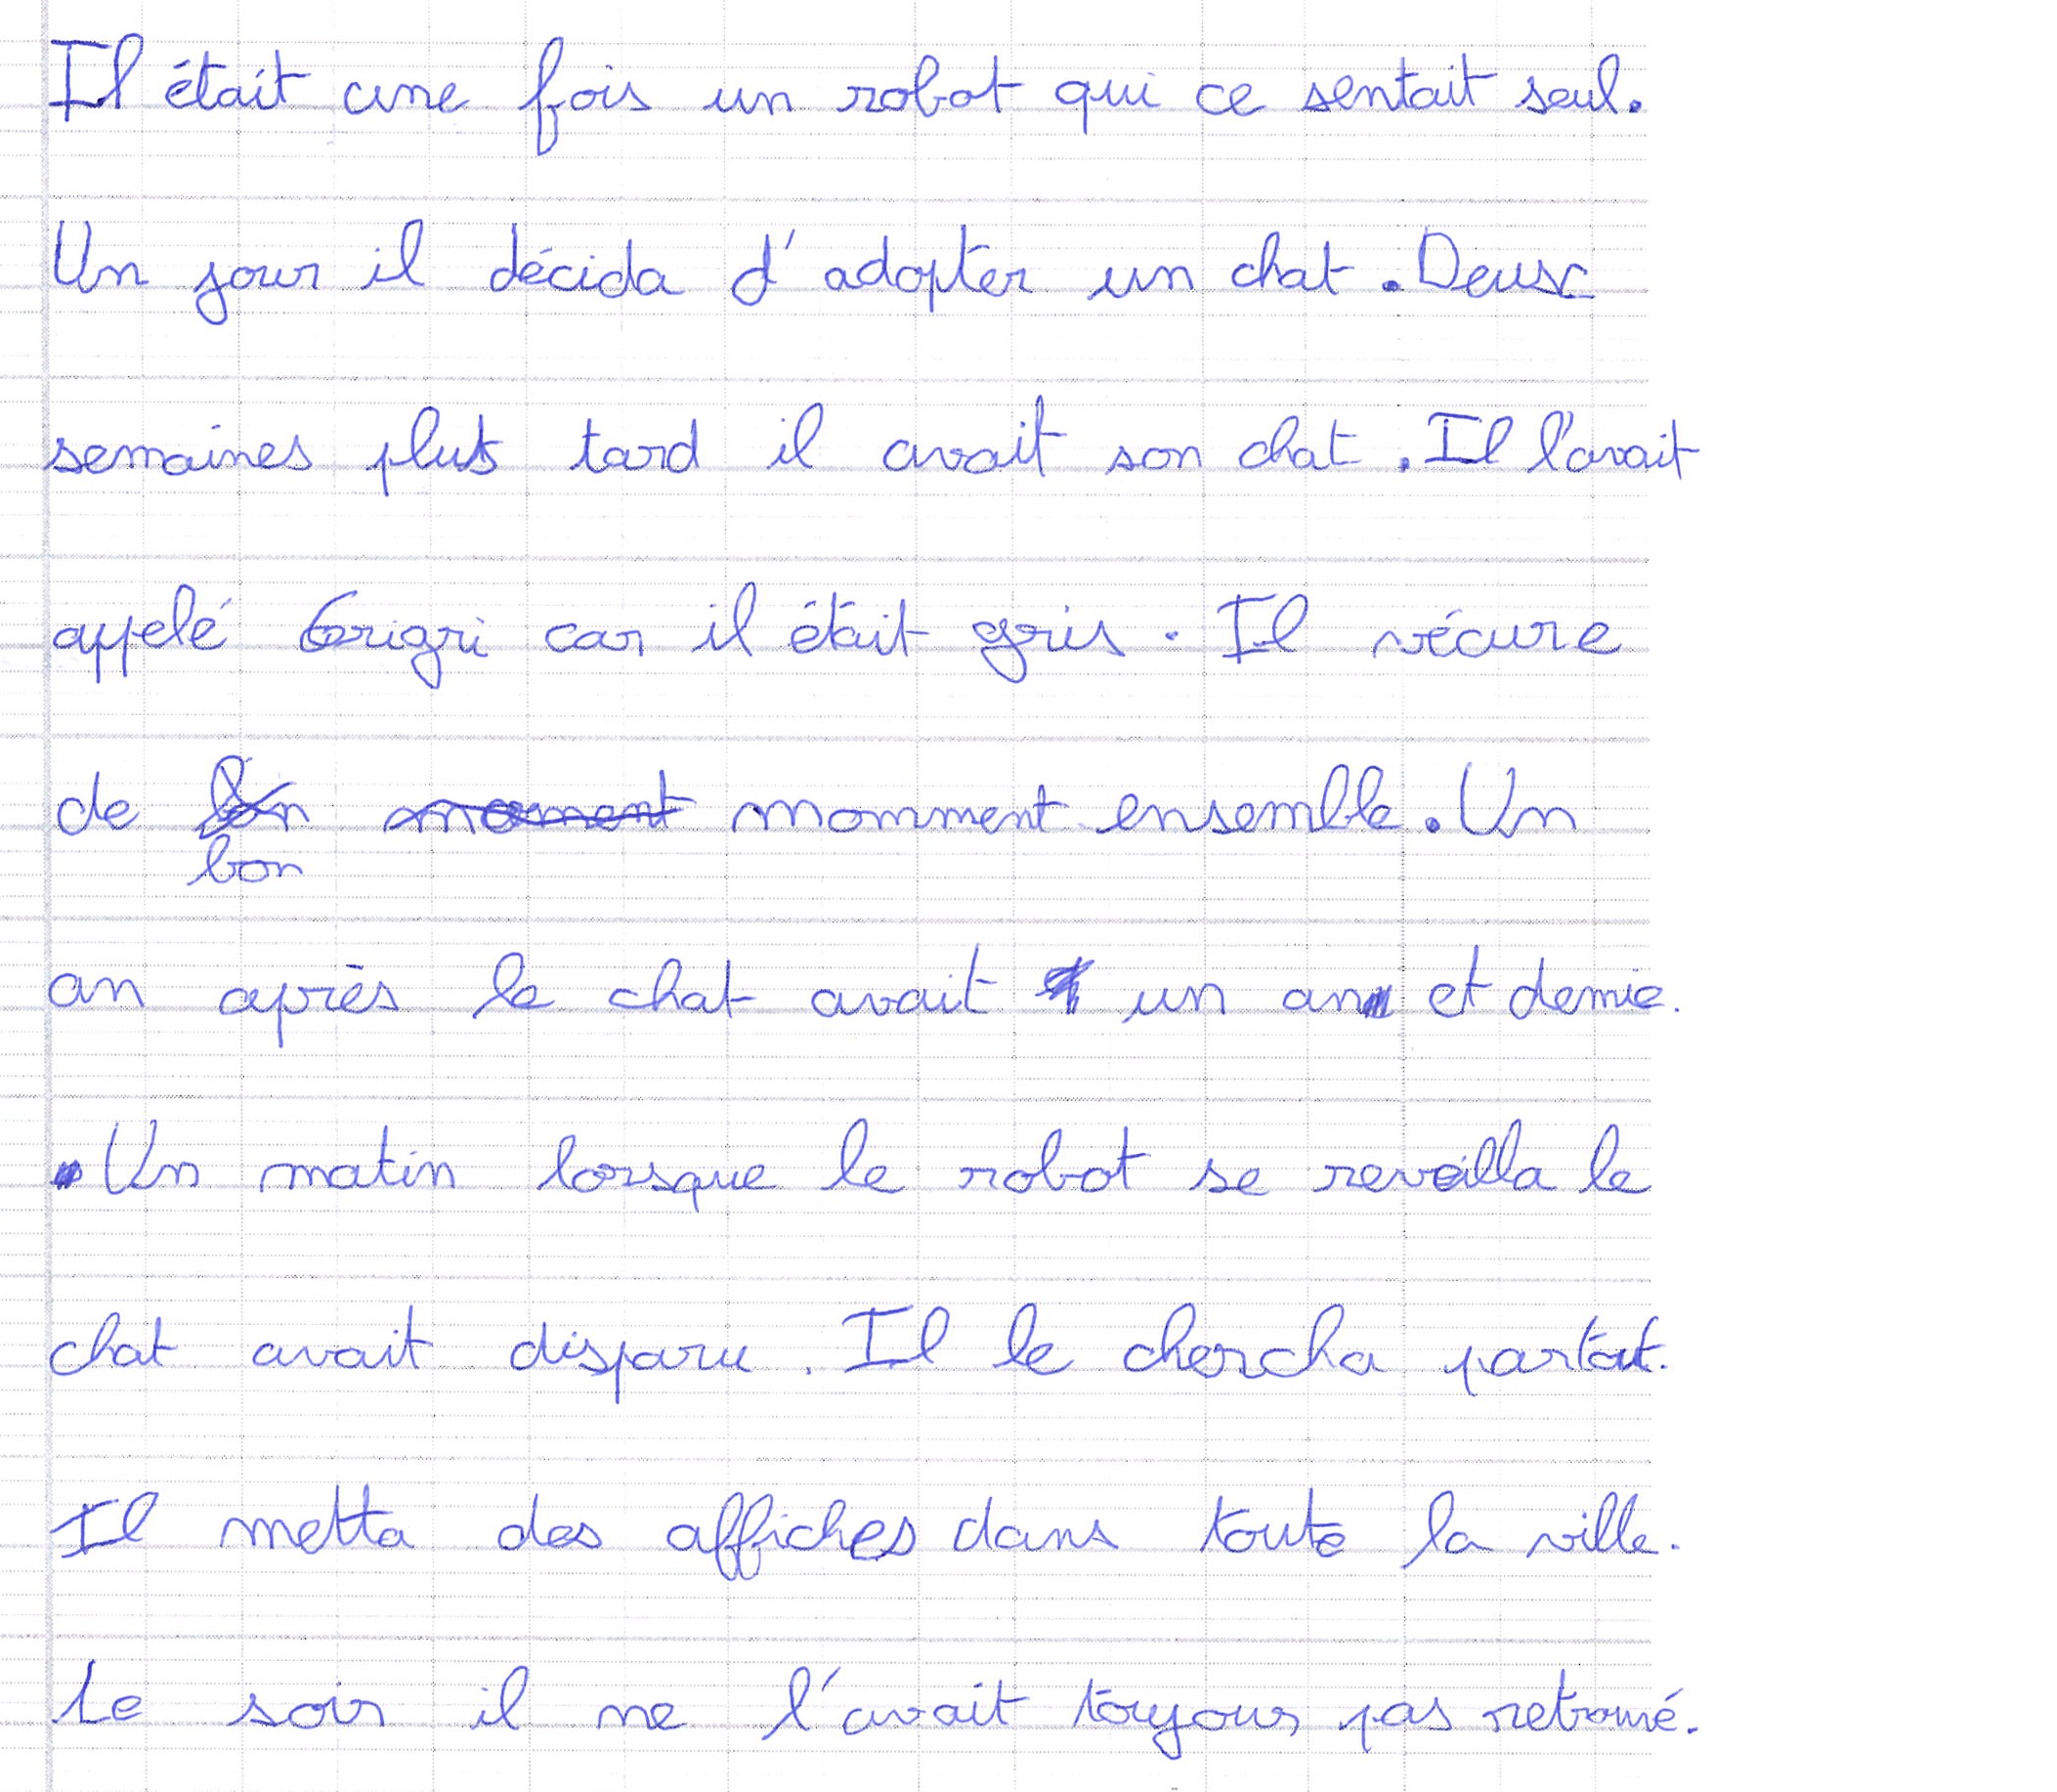 Il était une fois un robot qui ce sentait seul.
Un jour il décida d'adopter un chat. Deux
semaines plus tard il avait son chat. Il l'avait
appelé Grigri car il était gris. Il vécure
de bon moment momment ensemble. Un
bon
an après le chat avait un an et demie.
Un matin lorsque le robot se reveilla le
chat avait disparu. Il le chercha partout.
Il metta des affiches dans toute la ville.
Le soir il ne l'avait toujours pas retrouvé.